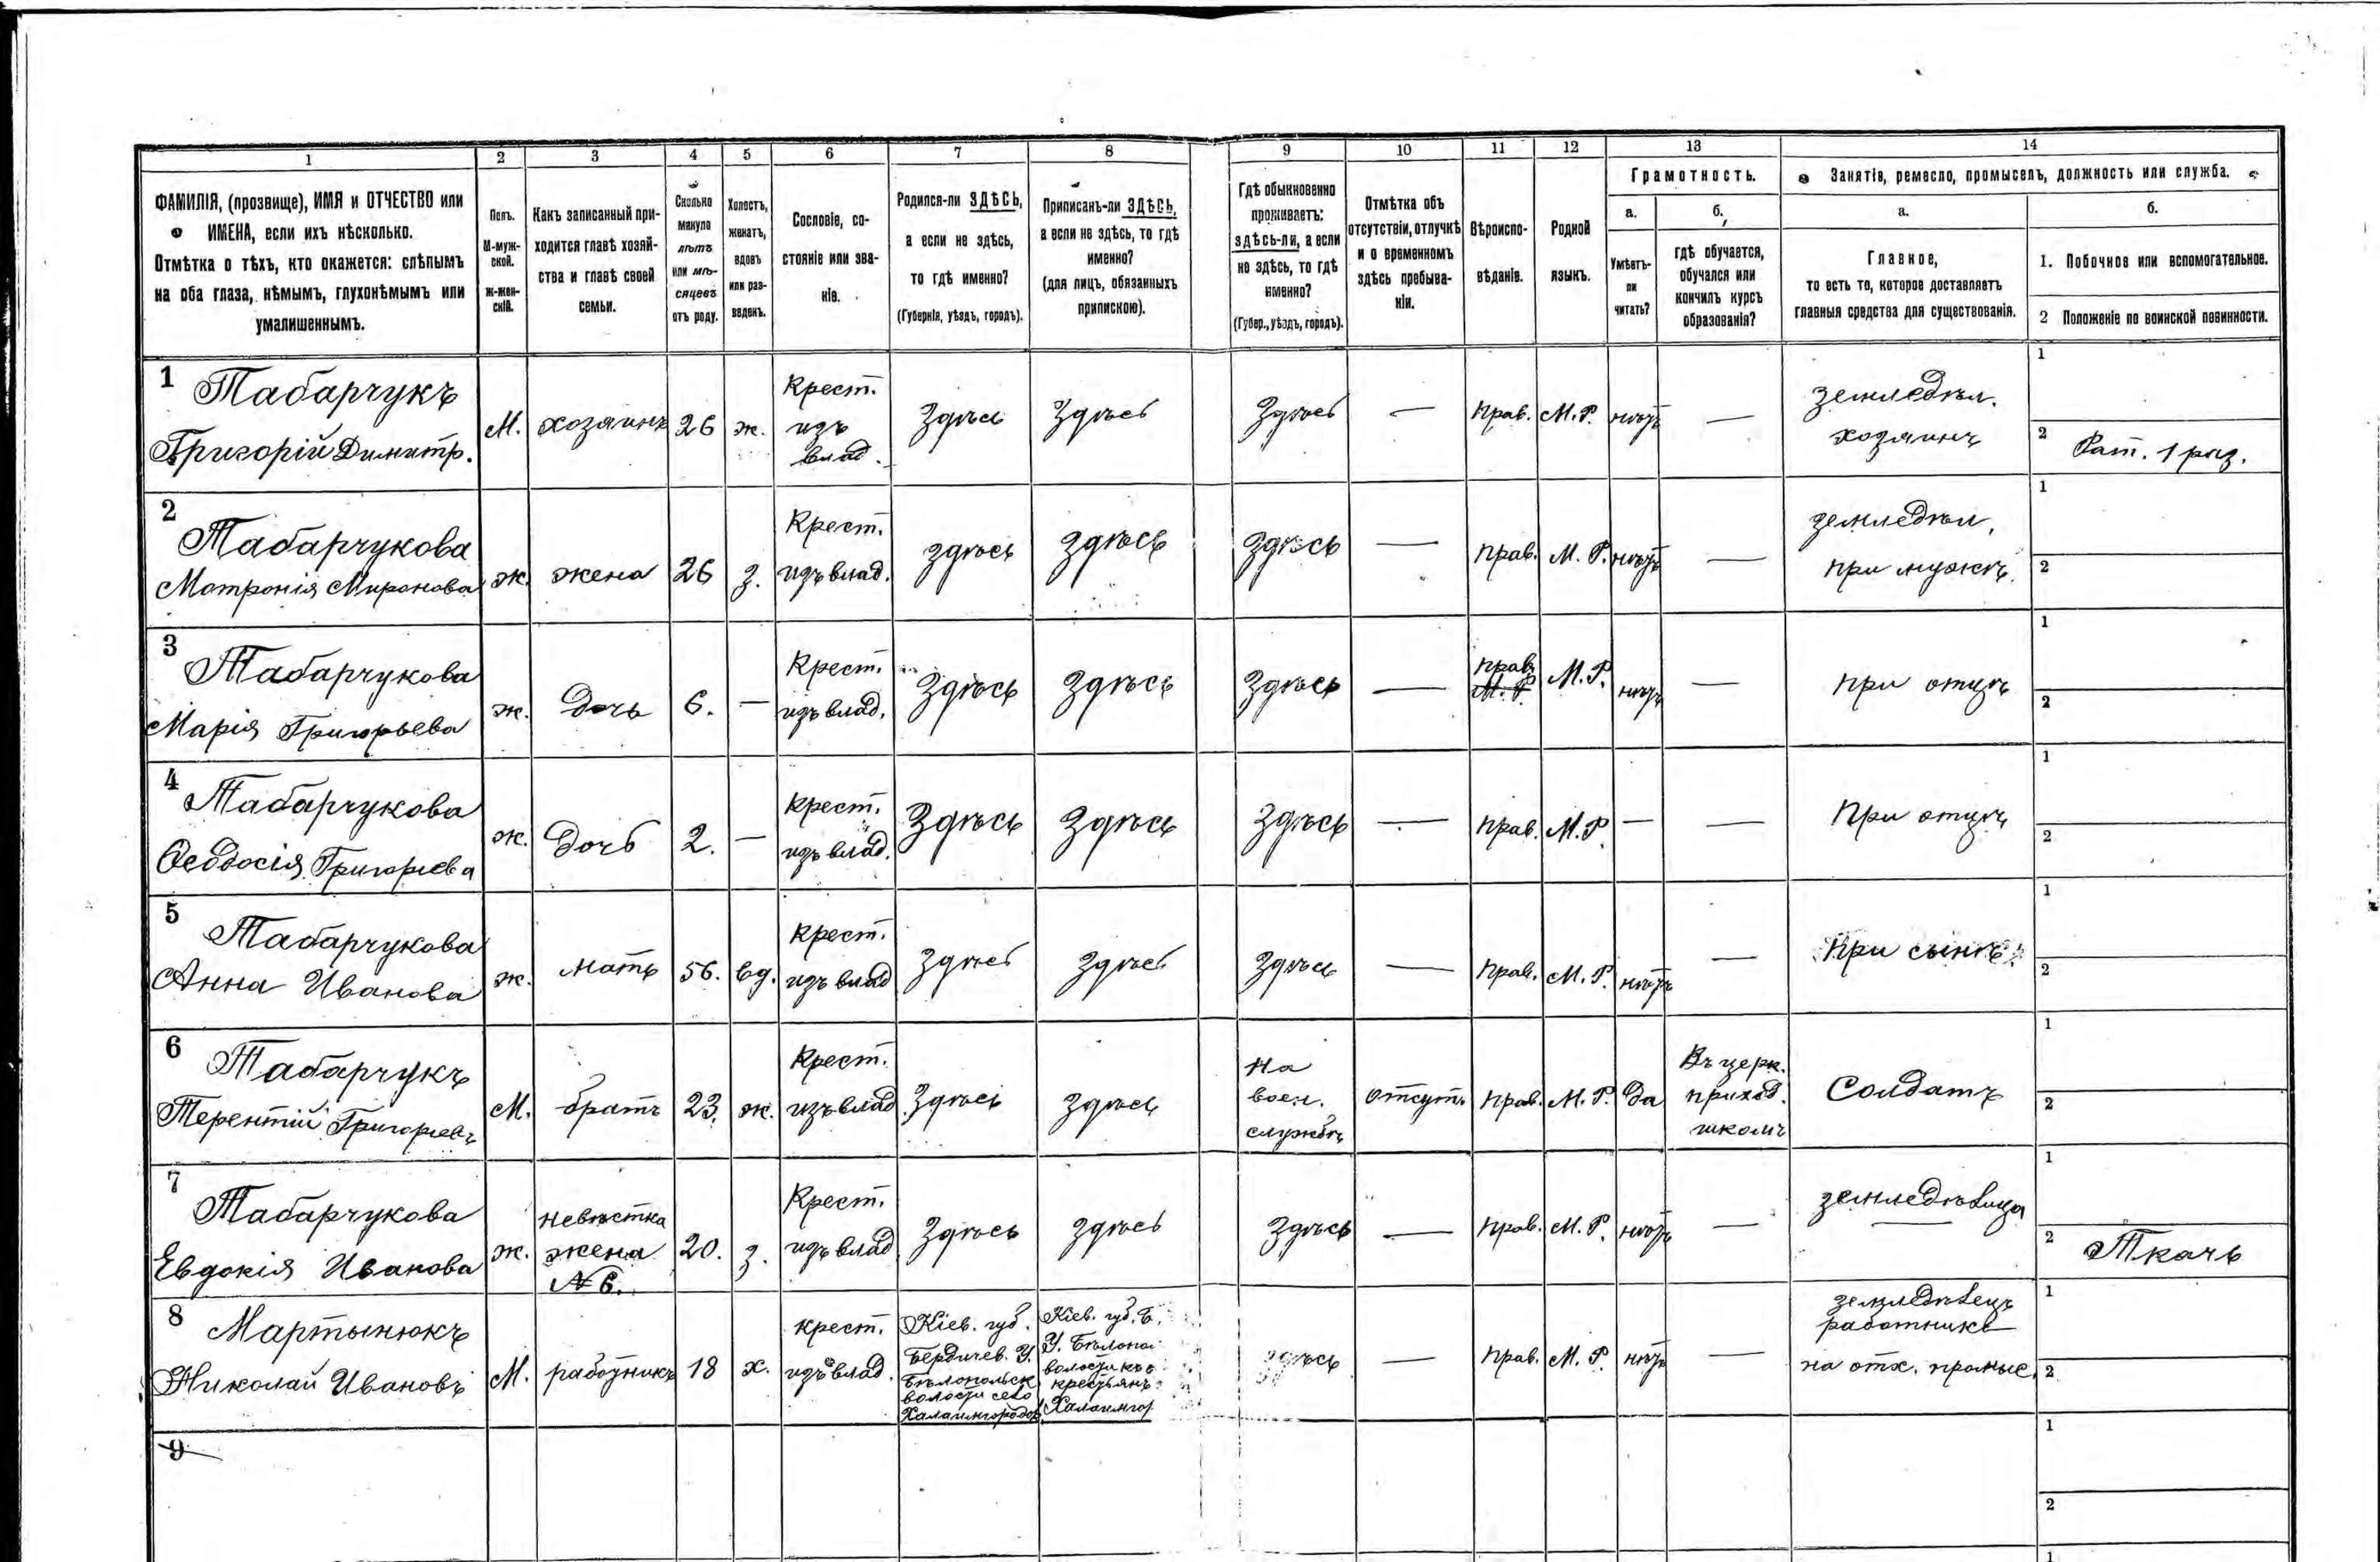 1 2 3 4 5 6 7 8 9 10 11 12 13 14
ФАМИЛІЯ, (прозвище), ИМЯ и ОТЧЕСТВО или
ИМЕНА, если ихъ нѣсколько.
Отмѣтка о тѣхъ, кто окажется: слѣпымъ
на оба глаза, нѣмымъ, глухонѣмымъ или
умалишеннымъ.
Полъ.
М-муж-
ской.
ж-жен-
скій.
Какъ записанный при-
ходится главѣ хозяй-
ства и главѣ своей
семьи.
Сколько
минуло
лѣтъ
или мѣ-
сяцевъ
отъ роду.
Холостъ,
женатъ,
вдовъ
или раз-
веденъ.
Сословіе, со-
стояніе или зва-
ніе.
Родился-ли ЗДѢСЬ,
а если не здѣсь,
то гдѣ именно?
(Губернія, уѣздъ, городъ).
Приписанъ-ли ЗДѢСЬ,
а если не здѣсь, то гдѣ
именно?
(для лицъ, обязанныхъ
припискою).
Гдѣ обыкновенно
проживаетъ:
здѣсь-ли, а если
не здѣсь, то гдѣ
именно?
(Губер., уѣздъ, городъ).
Отмѣтка объ
отсутствіи, отлучкѣ
и о временномъ
здѣсь пребыва-
ніи.
Вѣроиспо-
вѣданіе.
Родной
языкъ.
Грамотность.
а.
Умѣетъ-
ли
читать?
б.
гдѣ обучается,
обучался или
кончилъ курсъ
образованія?
Занятіе, ремесло, промыселъ, должность или служба.
а.
Главное,
то есть то, которое доставляетъ
главныя средства для существованія.
б.
1. Побочное или вспомогательное.
2 Положеніе по воинской повинности.
1 Табарчукъ
Григорій Димитр.
М.
хозяинъ
26
ж.
Крест.
изъ
влад.
Здѣсь
Здѣсь
Здѣсь
—
Прав.
М. Р.
нѣтъ
—
земледѣл.
хозяинъ
1
2 Рат. 1 раз.
2
Табарчукова
Матронія Миронова
ж.
жена
26
з.
Крест.
изъ влад.
здѣсь
здѣсь
здѣсь
—
Прав.
М. Р.
нѣтъ
—
земледѣл.
при мужѣ.
1
2
3
Табарчукова
Марія Григорьева
ж.
дочь
6.
—
Крест.
изъ влад.
Здѣсь
Здѣсь
Здѣсь
—
прав.
М. Р.
М. Р.
нѣтъ
—
при отцѣ
1
2
4
Табарчукова
Ѳеодосія Григорьева
ж.
дочь
2.
—
Крест.
изъ влад.
Здѣсь
Здѣсь
Здѣсь
—
Прав.
М. Р.
—
—
При отцѣ
1
2
5
Табарчукова
Анна Иванова
ж.
мать
56.
вд.
Крест.
изъ влад
Здѣсь
Здѣсь
Здѣсь
—
Прав.
М. Р.
нѣтъ
—
При сынѣ
1
2
6
Табарчукъ
Терентій Григорьевъ
М.
братъ
23.
ж.
Крест.
изъ влад
Здѣсь
Здѣсь
На
воен.
службѣ
отсут.
Прав.
М. Р.
да
Въ церк.
приход.
школѣ
Солдатъ
1
2
7
Табарчукова
Евдокія Иванова
ж.
невѣстка
жена
№ 6.
20.
з.
Крест.
изъ влад
Здѣсь
здѣсь
Здѣсь
—
Прав.
М. Р.
нѣтъ
—
земледѣлица
1
2 Ткачь
8
Мартынюкъ
Николай Ивановъ
М.
работникъ
18
х.
крест.
изъ влад.
Кіев. губ.
Бердичев. У.
Бѣлопольск
волости село
Халаимгородок
Кіев. губ. Б.
У. Бѣлопол
волости къ
крестьянъ
Халаимгор
здѣсь
—
Прав.
М. Р.
нѣтъ
—
земледѣлецъ
работникъ
на отх. промыс.
1
2
9
1
2
1